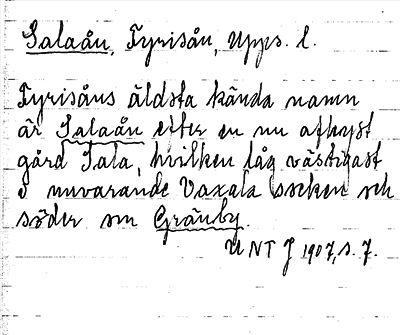 Salaån, Fyrisån, Upps. l.
Fyrisåns äldsta kända namn
är Salaån efter en nu afhyst
gård Sala, hvilken låg västligast
i nuvarande Vaxala socken och
söder om Gränby.
UNT J 1907, s. 7.